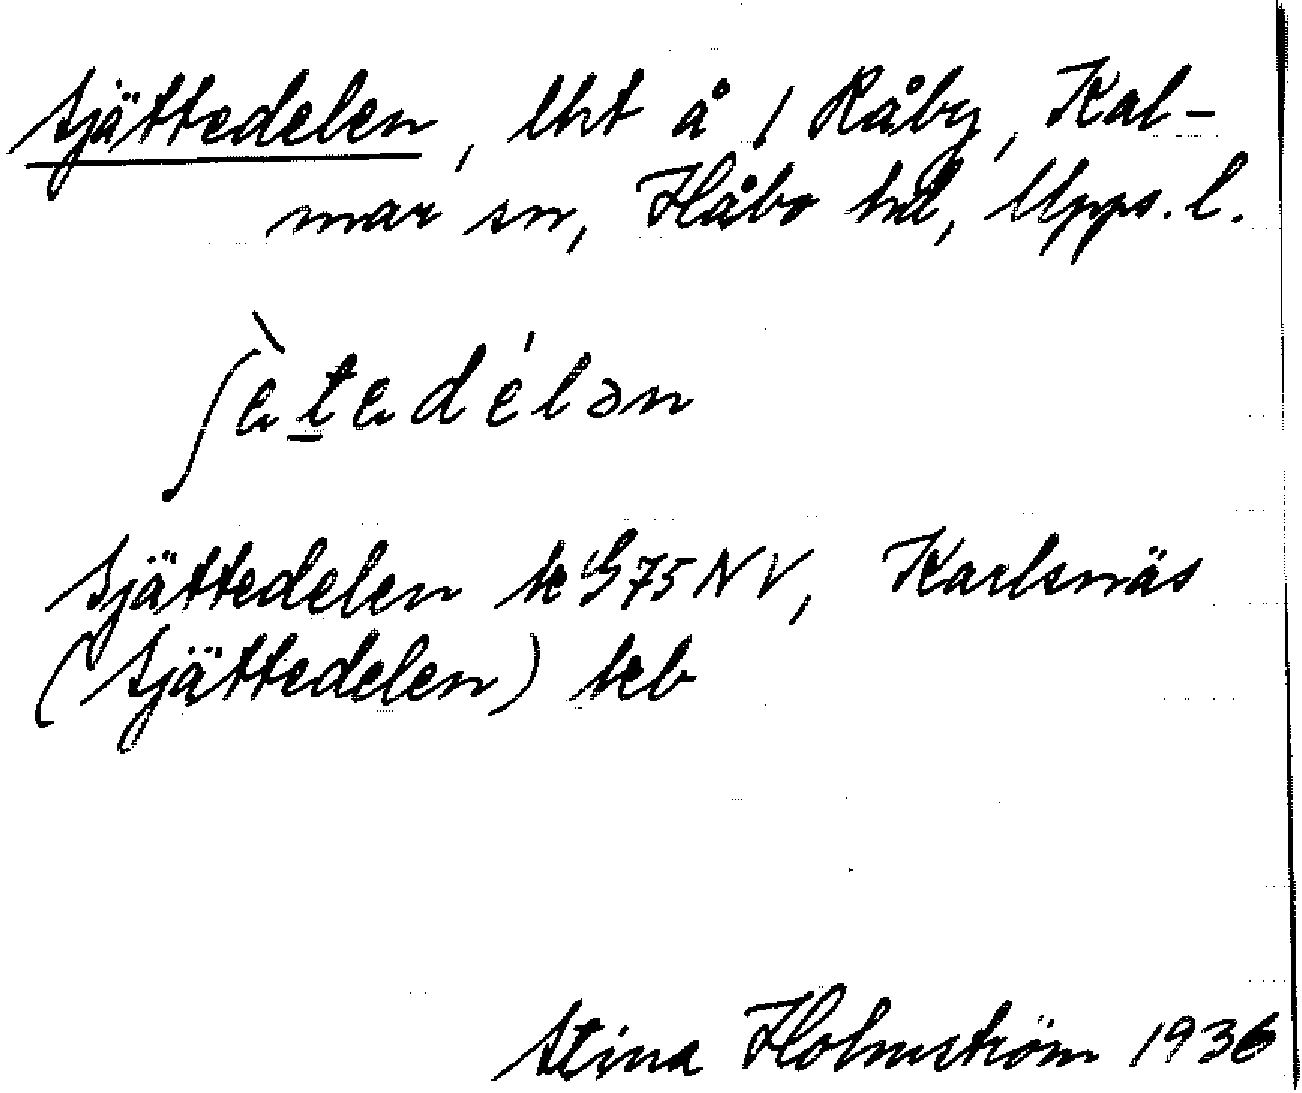 Sjättedelen, lht å 1 Råby, Kal-
mar sn, Håbo hd, Upps. l.
ʃètedélən
Sjättedelen ek S75NV, Karlsnäs
(Sjättedelen) jeb
Stina Holmström 1936